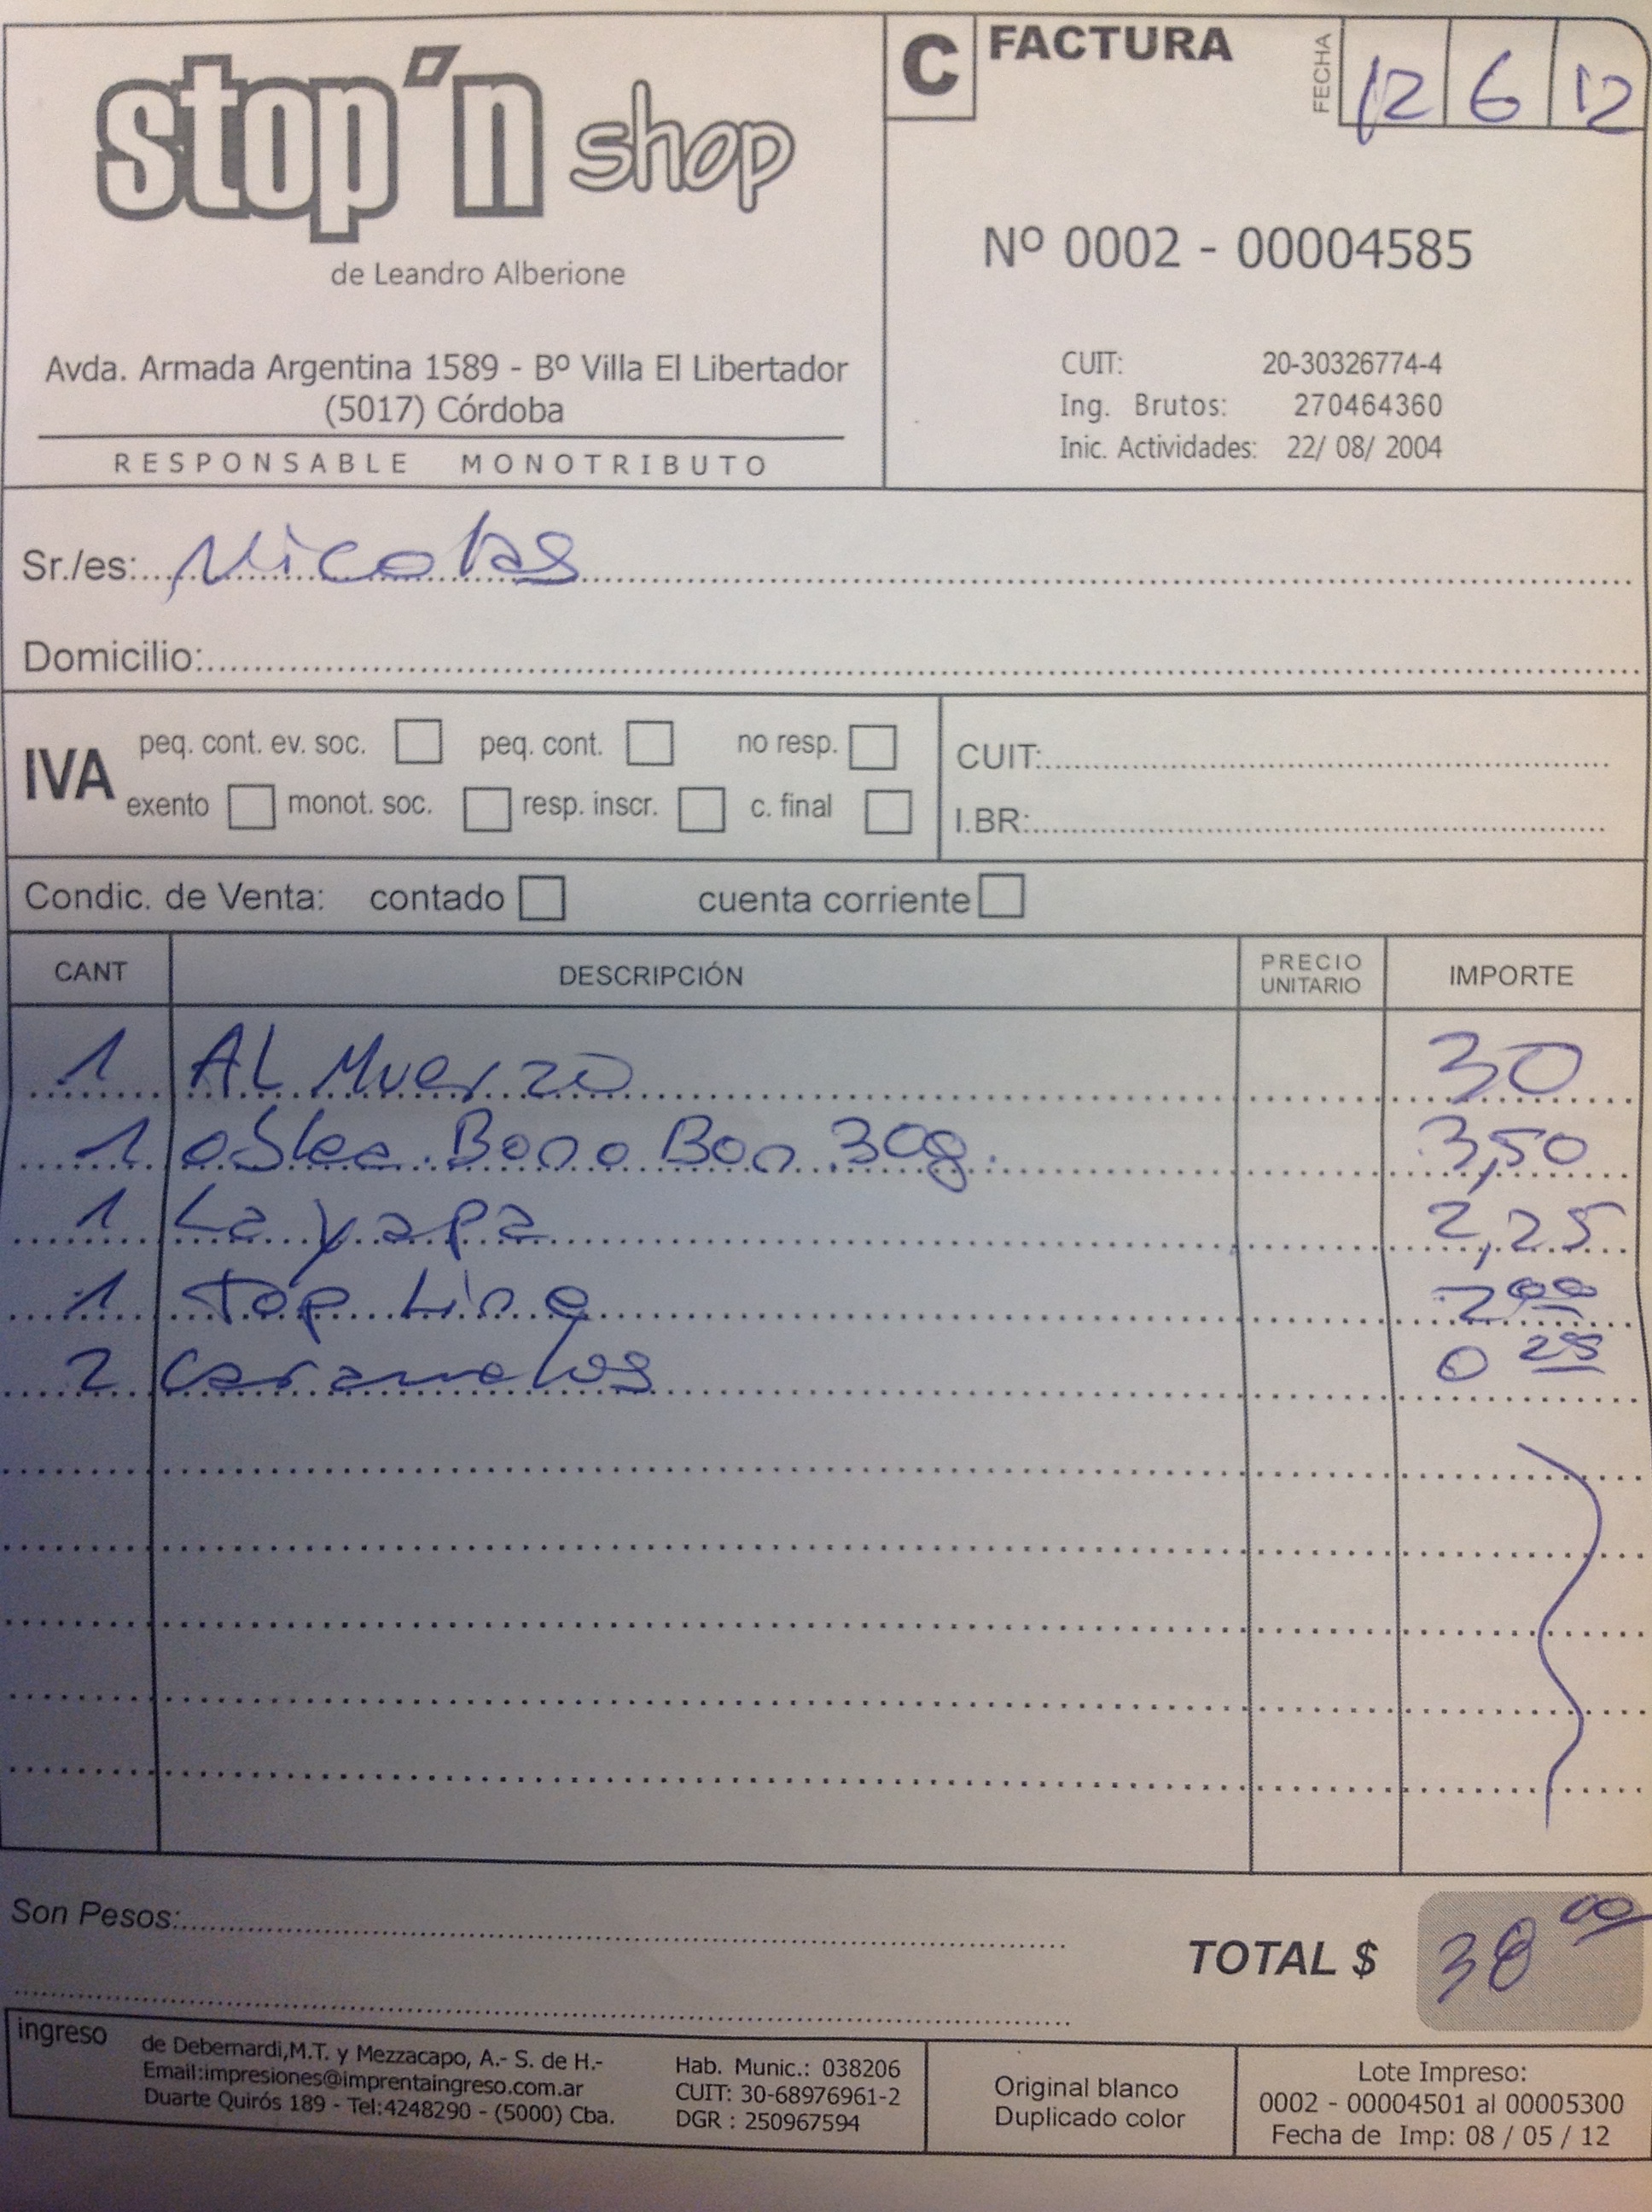 stop'n shop
de Leandro Alberione
Avda. Armada Argentina 1589 - Bº Villa El Libertador
(5017) Córdoba
RESPONSABLE MONOTRIBUTO
C FACTURA
FECHA 12 6 12
Nº 0002 - 00004585
CUIT: 20-30326774-4
Ing. Brutos: 270464360
Inic. Actividades: 22/ 08/ 2004
Sr./es: Nicolas
Domicilio:
IVA peq. cont. ev. soc. peq. cont. no resp.
exento monot. soc. resp. inscr. c. final
CUIT:
I.BR:
Condic. de Venta: contado cuenta corriente
CANT DESCRIPCIÓN PRECIO UNITARIO IMPORTE
1 AL Muerzo 30
1 oblea Bono Bon 30g. 3,50
1 La yapa 2,25
1 Top Line 2 00
2 Caramelos 0 25
Son Pesos:
TOTAL $ 38 00
ingreso
de Debernardi,M.T. y Mezzacapo, A.- S. de H.-
Email:impresiones@imprentaingreso.com.ar
Duarte Quirós 189 - Tel:4248290 - (5000) Cba.
Hab. Munic.: 038206
CUIT: 30-68976961-2
DGR : 250967594
Original blanco
Duplicado color
Lote Impreso:
0002 - 00004501 al 00005300
Fecha de Imp: 08 / 05 / 12